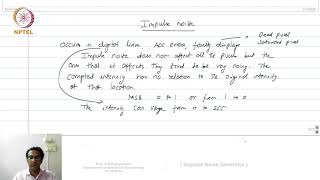 Impulse noise
Occurs in digital lines, ADC errors, faulty displays
Dead pixel
Saturated pixel
Impulse noise does not affect all the pixels but the
ones that it affects they tend to be very noisy. The
corrupted intensity has no relation to the original intensity
at that location.
MSB 0 to 1 or from 1 to 0
The intensity can range from 0 to 255
NPTEL
(Impulse Noise Generator)